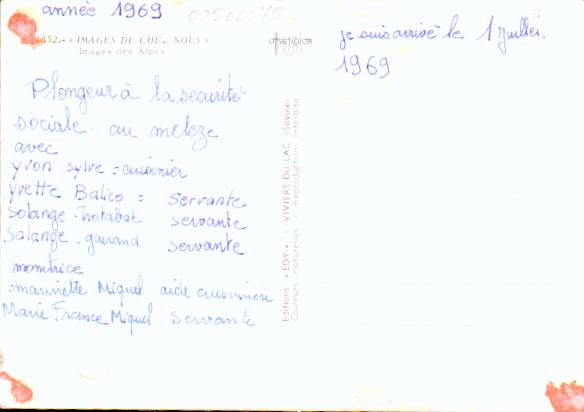 année 1969
00500075
1652.- « IMAGES DE CHEZ NOUS »
Images des Alpes
OFFSET COLOR
je suis arrivé le 1 Juillei.
1969
Plongeur à la securité
sociale au meleze
avec
yvon sylve = cuisinier
Yvette Balico = Servante
Solange - Trotabat servante
Solange - guirand servante
monitrice
marinette Miquel aide cuisinière
Marie France Miquel Servante
Editions « EDY » - VIVIERS-DU-LAC (Savoie)
Couleurs naturelles Reproduction interdite